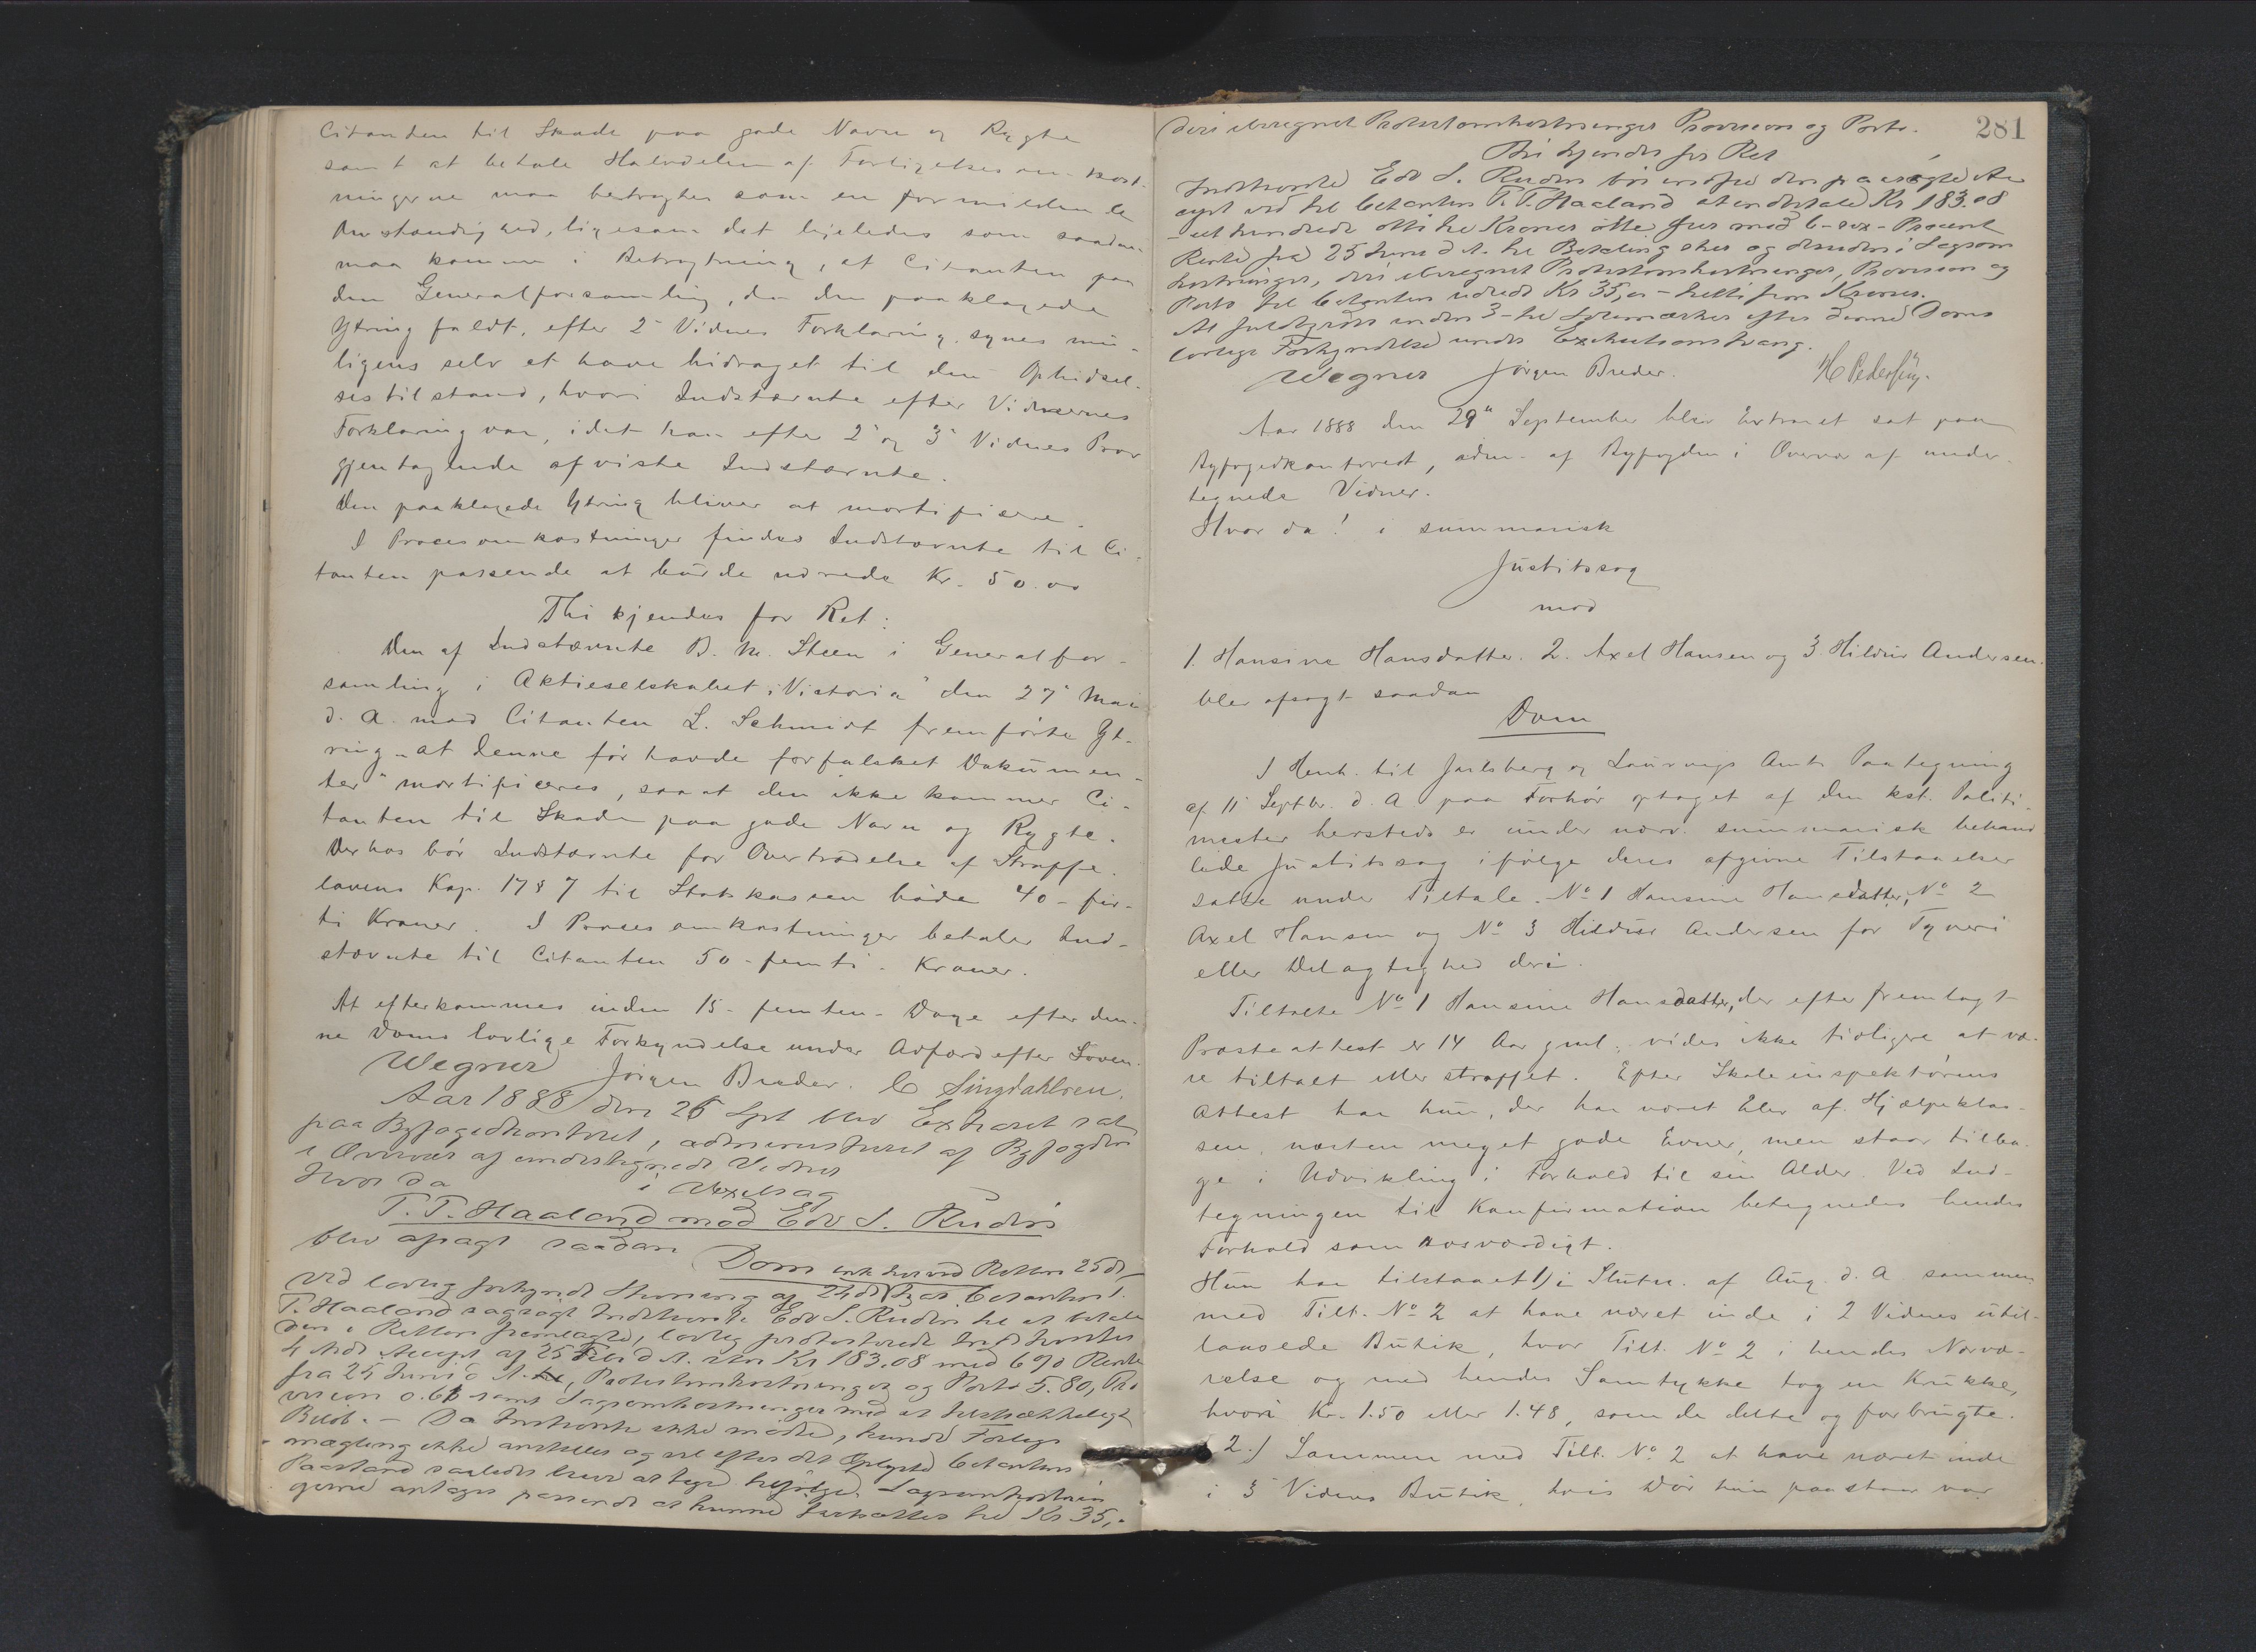 Citanten til Skade paa gode Navn og Rygte
samt at betale Halvdelen af Forligelsesomkost-
ningerne maa betragtes som en formildende
Omstændighed, ligesom det ligeledes som saadan
maa komme i Betragtning, at Citanten paa
den Generalforsamling, da den paaklagede
Ytring faldt, efter 2det Vidnes Forklaring, synes mu-
ligens selv at have bidraget til den Ophidsel-
sestilstand, hvori Indstævnte efter Vidnernes
Forklaring var, idet han efter 2' og 3' Vidnes Prov
gjentagende afviste Indstævnte.
Den paaklagede Ytring bliver at mortificere.
I Procesomkostninger findes Indstævnte til Ci-
tanten passende at burde udrede Kr. 50.00
Thi kjendes for Ret:
Den af Indstævnte B. M. Steen i Generalfor-
samling i Aktieselskabet "Victoria" den 27' Mai
d. A. mod Citanten L. Schmidt fremførte Yt-
ring "at denne før havde forfalsket Dokumen-
ter" mortificeres, saa at den ikke kommer Ci-
tanten til Skade paa gode Navn og Rygte.
Derhos bør Indstævnte for Overtrædelse af Straffe-
lovens Kap. 17 § 7 til Statskassen bøde 40 - fir-
ti Kroner. I Procesomkostninger betaler Ind-
stævnte til Citanten 50 - femti - Kroner.
At efterkommes inden 15 - femten - Dage efter den-
ne Doms lovlige Forkyndelse under Adfærd efter Loven.
Wegner Jørgen Bruder. C Singdahlsen.
Aar 1888 den 26 Spt blev Extraret sat
paa Byfogedkontoret, administreret af Byfogden
i Overvær af undertegnede Vidner
Hvor da i Vexelsag
T. T. Haaland mod Edv S. Ruden
blev afsagt saadan
Dom
Ved lovlig forkyndt Stevning af 24 ds har Citanten T.
T. Haaland sagsøgt Indstevnte Edv S. Ruden til at betale
den i Retten fremlagte, lovlig protesterede
4 Mdr Accept af 25 Feb d A. stor Kr 183.08 med 6 % Rente
fra 25 Juni d A., Protestomkostninger og Porto 5.80, Pro
vision 0.61 samt Sagsomkostninger med et tilstrækkeligt
Beløb. - Da Indstevnte ikke mødte, kunde Forligs
mægling ikke anstilles og vil efter det Oplyste Citantens
Paastand saaledes blive at tage tilfølge. Sagsomkostnin
gerne antages passende at kunne fastsættes til Kr 35,-
281
deri iberegnet Protestomkostninger Provision og Porto.
Thi kjendes for Ret
Indstevnte Edv S. Ruden bør ifølge den paasøgte Ac
cept ved til Citanten T. T. Haaland at indbetale Kr 183.08
- et hundrede otti tre Kroner otte Øre med 6 - sex - Procent
Rente fra 25 Juni d A. til Betaling sker og desuden i Sagsom
kostninger, deri iberegnet Protestomkostninger, Provision og
Porto til Citanten udrede Kr 35,00 - tretti fem Kroner.
At fuldbyrdes inden 3 - tre Solemærker efter denne Doms
lovlige Forkyndelse under Exekutionstvang.
Wegner Jørgen Bruder. H Pedersen.
Aar 1888 den 29' September blev Extraret sat paa
Byfogedkontoret, adm. af Byfogden i Overvær af under-
tegnede Vidner.
Hvor da! i summarisk
Justitssag
mod
1. Hansine Hansdatter. 2. Axel Hansen og 3. Hildur Andersen.
blev afsagt saadan
Dom
I Henh. til Jarlsberg og Laurvigs Amts Paategning
af 11' Septbr. d. A. paa Forhør optaget af den kst. Politi-
mester hersteds er under nærv. summarisk behand
lede Justitssag ifølge deres afgivne Tilstaaelser
satte under Tiltale No 1 Hansine Hansdatter, No 2
Axel Hansen og No 3 Hildur Andersen for Tyveri
eller Delagtighed deri.
Tiltalte No 1 Hansine Hansdatter, der efter fremlagt
Præsteattest er 14 Aar gml., vides ikke tidligere at væ-
re tiltalt eller straffet. Efter Skoleinspektørens
Attest har hun, der har været Elev af Hjælpeklas-
sen, næsten meget gode Evner, men staar tilba-
ge i Udvikling i Forhold til sin Alder. Ved Ind-
tegningen til Konfirmation betegnedes hendes
Forhold som rosværdigt.
Hun har tilstaaet 1) i Slutn. af Aug. d. A. sammen
med Tilt. No 2 at have været inde i 2 Vidnes util-
laasede Butik, hvor Tilt. No 2 i hendes Nærvæ-
relse og med hendes Samtykke tog en Krukke,
hvori Kr. 1.50 eller 1.48, som de delte og forbrugte.
2.) Sammen med Tilt. No 2 at have været inde
i 3' Vidnes Butik, hvis Dør hun paastaar var